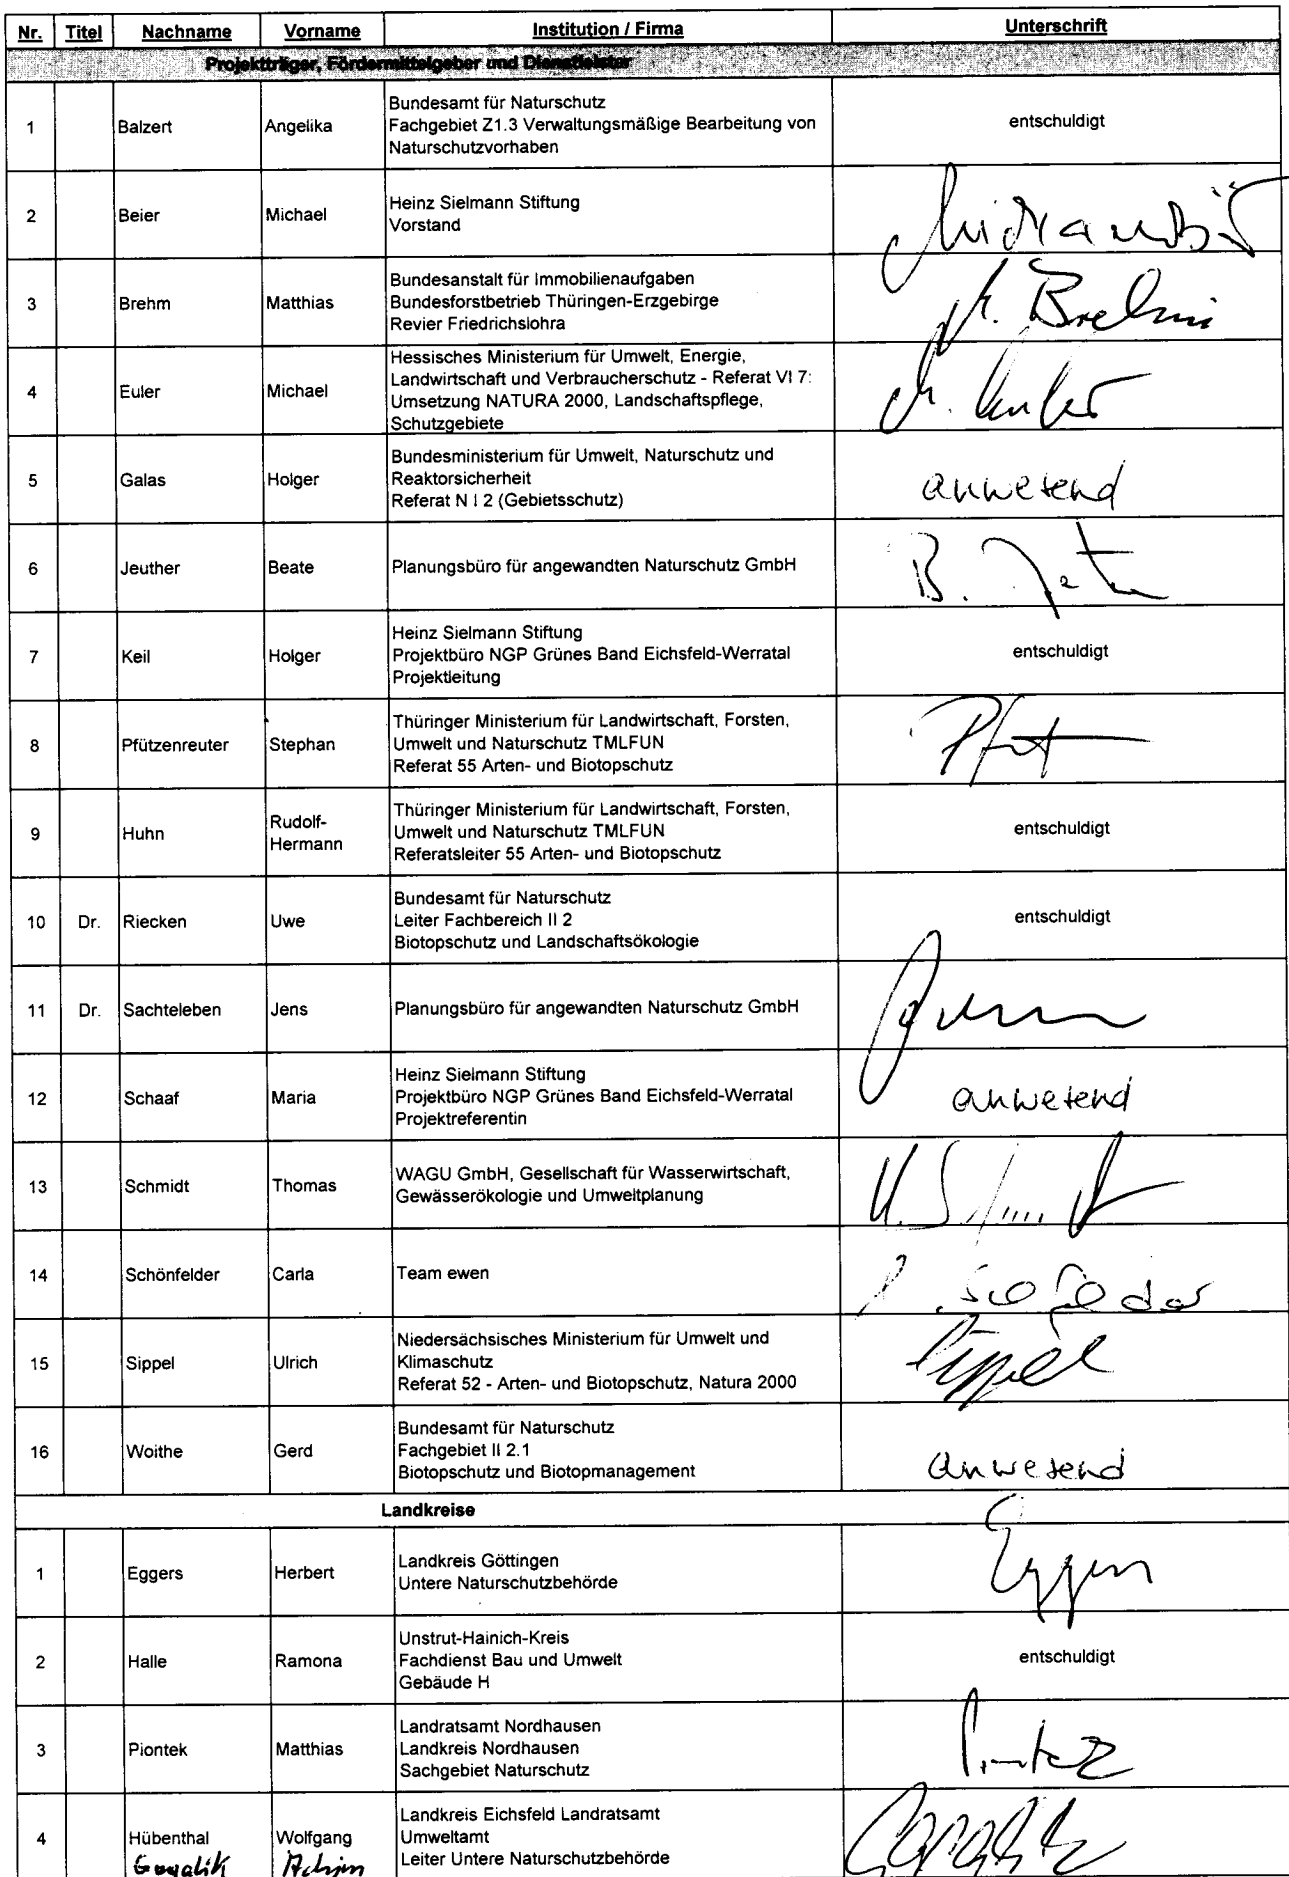 Nr. Titel Nachname Vorname Institution / Firma Unterschrift
Projektträger, Fördermittelgeber und Dienstleister
1 Balzert Angelika Bundesamt für Naturschutz
Fachgebiet Z1.3 Verwaltungsmäßige Bearbeitung von
Naturschutzvorhaben
entschuldigt
2 Beier Michael Heinz Sielmann Stiftung
Vorstand
3 Brehm Matthias Bundesanstalt für Immobilienaufgaben
Bundesforstbetrieb Thüringen-Erzgebirge
Revier Friedrichslohra
M. Brehm
4 Euler Michael Hessisches Ministerium für Umwelt, Energie,
Landwirtschaft und Verbraucherschutz - Referat VI 7:
Umsetzung NATURA 2000, Landschaftspflege,
Schutzgebiete
5 Galas Holger Bundesministerium für Umwelt, Naturschutz und
Reaktorsicherheit
Referat N I 2 (Gebietsschutz)
anwesend
6 Jeuther Beate Planungsbüro für angewandten Naturschutz GmbH
7 Keil Holger Heinz Sielmann Stiftung
Projektbüro NGP Grünes Band Eichsfeld-Werratal
Projektleitung
entschuldigt
8 Pfützenreuter Stephan Thüringer Ministerium für Landwirtschaft, Forsten,
Umwelt und Naturschutz TMLFUN
Referat 55 Arten- und Biotopschutz
9 Huhn Rudolf-
Hermann
Thüringer Ministerium für Landwirtschaft, Forsten,
Umwelt und Naturschutz TMLFUN
Referatsleiter 55 Arten- und Biotopschutz
entschuldigt
10 Dr. Riecken Uwe Bundesamt für Naturschutz
Leiter Fachbereich II 2
Biotopschutz und Landschaftsökologie
entschuldigt
11 Dr. Sachteleben Jens Planungsbüro für angewandten Naturschutz GmbH
12 Schaaf Maria Heinz Sielmann Stiftung
Projektbüro NGP Grünes Band Eichsfeld-Werratal
Projektreferentin
anwesend
13 Schmidt Thomas WAGU GmbH, Gesellschaft für Wasserwirtschaft,
Gewässerökologie und Umweltplanung
14 Schönfelder Carla Team ewen
15 Sippel Ulrich Niedersächsisches Ministerium für Umwelt und
Klimaschutz
Referat 52 - Arten- und Biotopschutz, Natura 2000
Sippel
16 Woithe Gerd Bundesamt für Naturschutz
Fachgebiet II 2.1
Biotopschutz und Biotopmanagement
anwesend
Landkreise
1 Eggers Herbert Landkreis Göttingen
Untere Naturschutzbehörde
Eggers
2 Halle Ramona Unstrut-Hainich-Kreis
Fachdienst Bau und Umwelt
Gebäude H
entschuldigt
3 Piontek Matthias Landratsamt Nordhausen
Landkreis Nordhausen
Sachgebiet Naturschutz
4 Hübenthal Wolfgang Landkreis Eichsfeld Landratsamt
Umweltamt
Leiter Untere Naturschutzbehörde